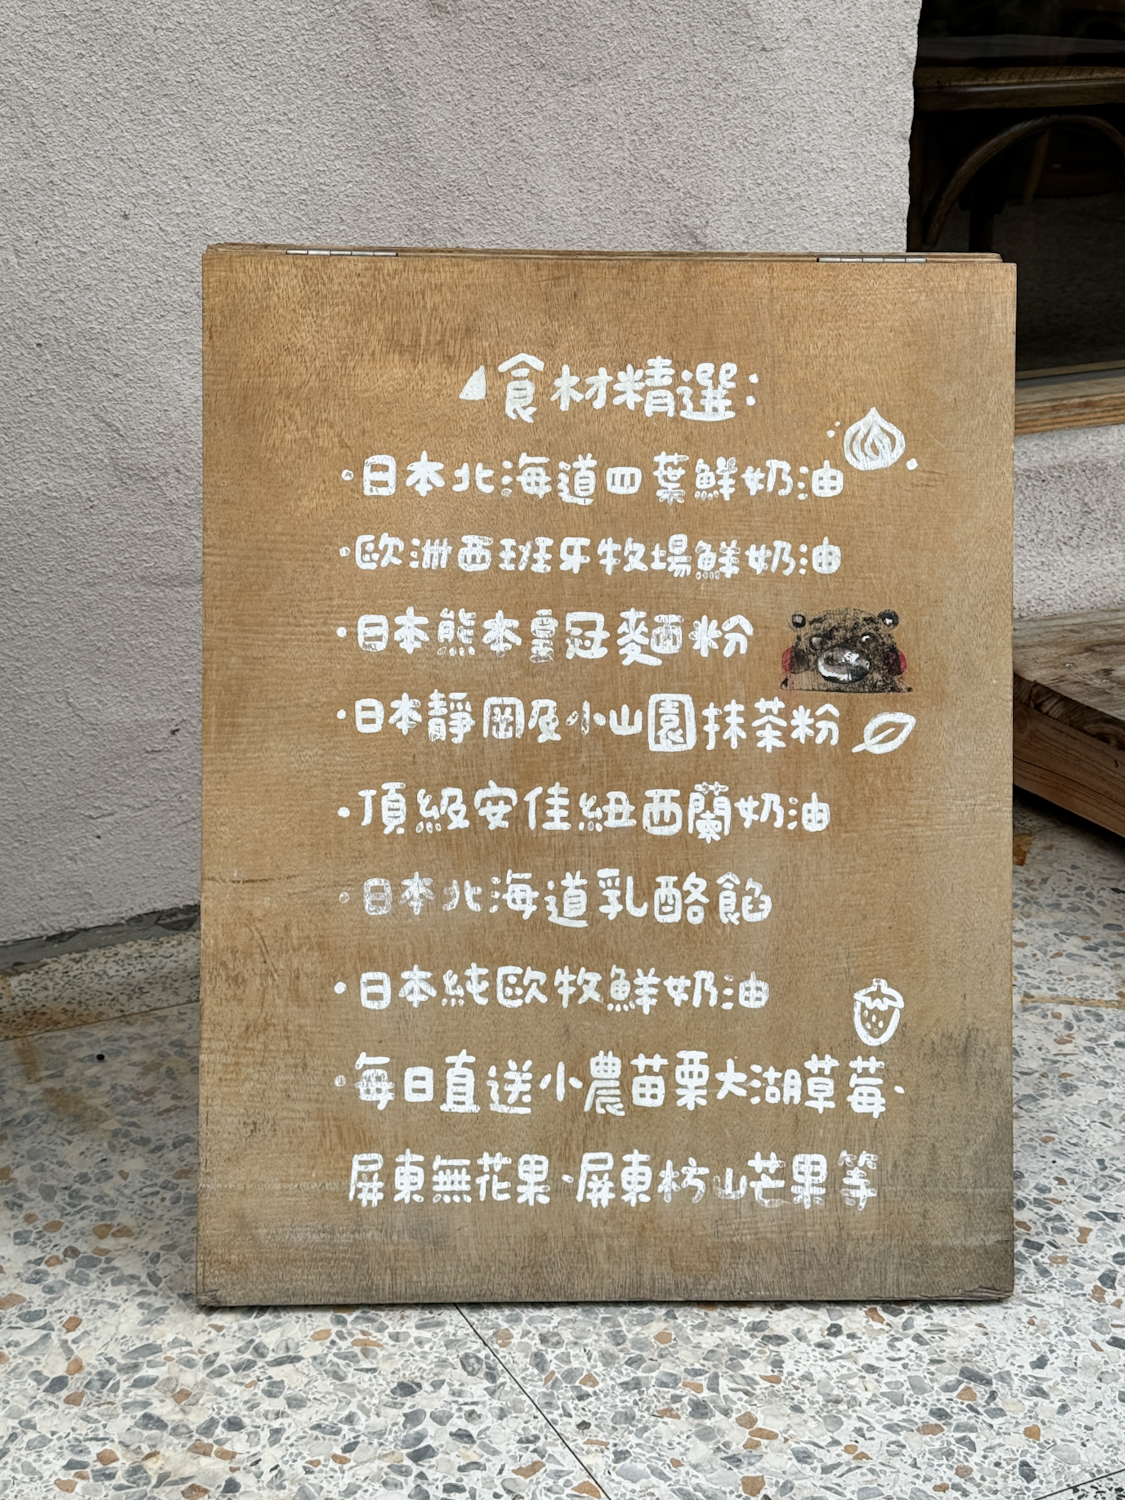 食材精選:
·日本北海道四葉鮮奶油
·歐洲西班牙牧場鮮奶油
·日本熊本皇冠麵粉
·日本靜岡及小山園抹茶粉
·頂級安佳紐西蘭奶油
·日本北海道乳酪餡
·日本純歐牧鮮奶油
·每日直送小農苗栗大湖草莓·
屏東無花果·屏東枋山芒果等